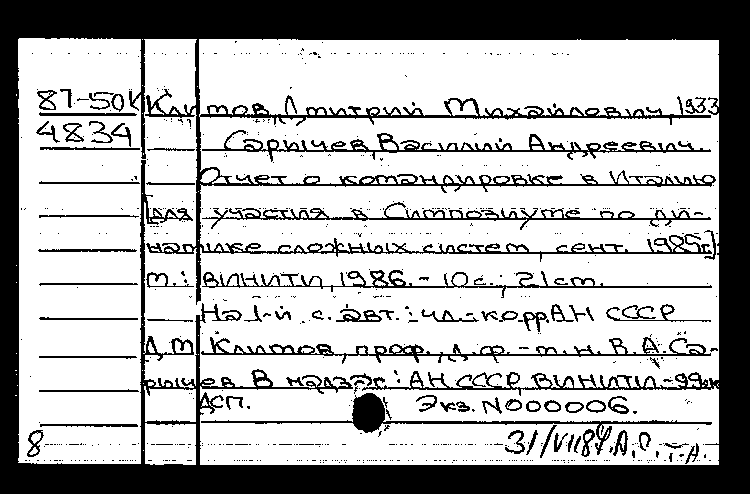 87-50К Климов, Дмитрий Михайлович, 1933
4834 Сарычев, Василий Андреевич.
Отчет о командировке в Италию
[для участия в Симпозиуме по ди-
намике сложных систем, сент. 1985г.]
М.: ВИНИТИ, 1986. - 10 с.; 21 см.
На 1-й с. авт.: чл.-корр. АН СССР
Д.М. Климов, проф., д.ф.-м.н. В.А. Са-
рычев. В надзаг.: АН СССР, ВИНИТИ. - 99
ДСП. Экз. N000006.
8 31/VII87.